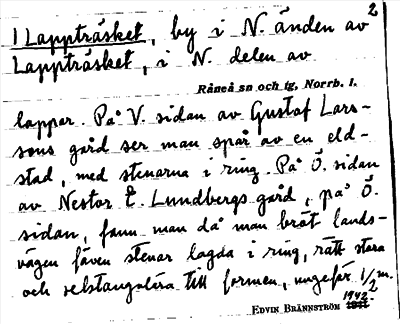 2
1 Lappträsket, by i N. änden av
Lappträsket, i N. delen av
Råneå sn och tg, Norrb. l.
lappar. På V. sidan av Gustaf Lars-
sons gård ser man spår av en eld-
stad, med stenarna i ring. På Ö. sidan
av Nestor E. Lundbergs gård, på Ö.
sidan, fann man då man bröt lands-
vägen även stenar lagda i ring, rätt stora
och rektangulära till formen, ungefär 1/2 m.
EDVIN BRÄNNSTRÖM 1942